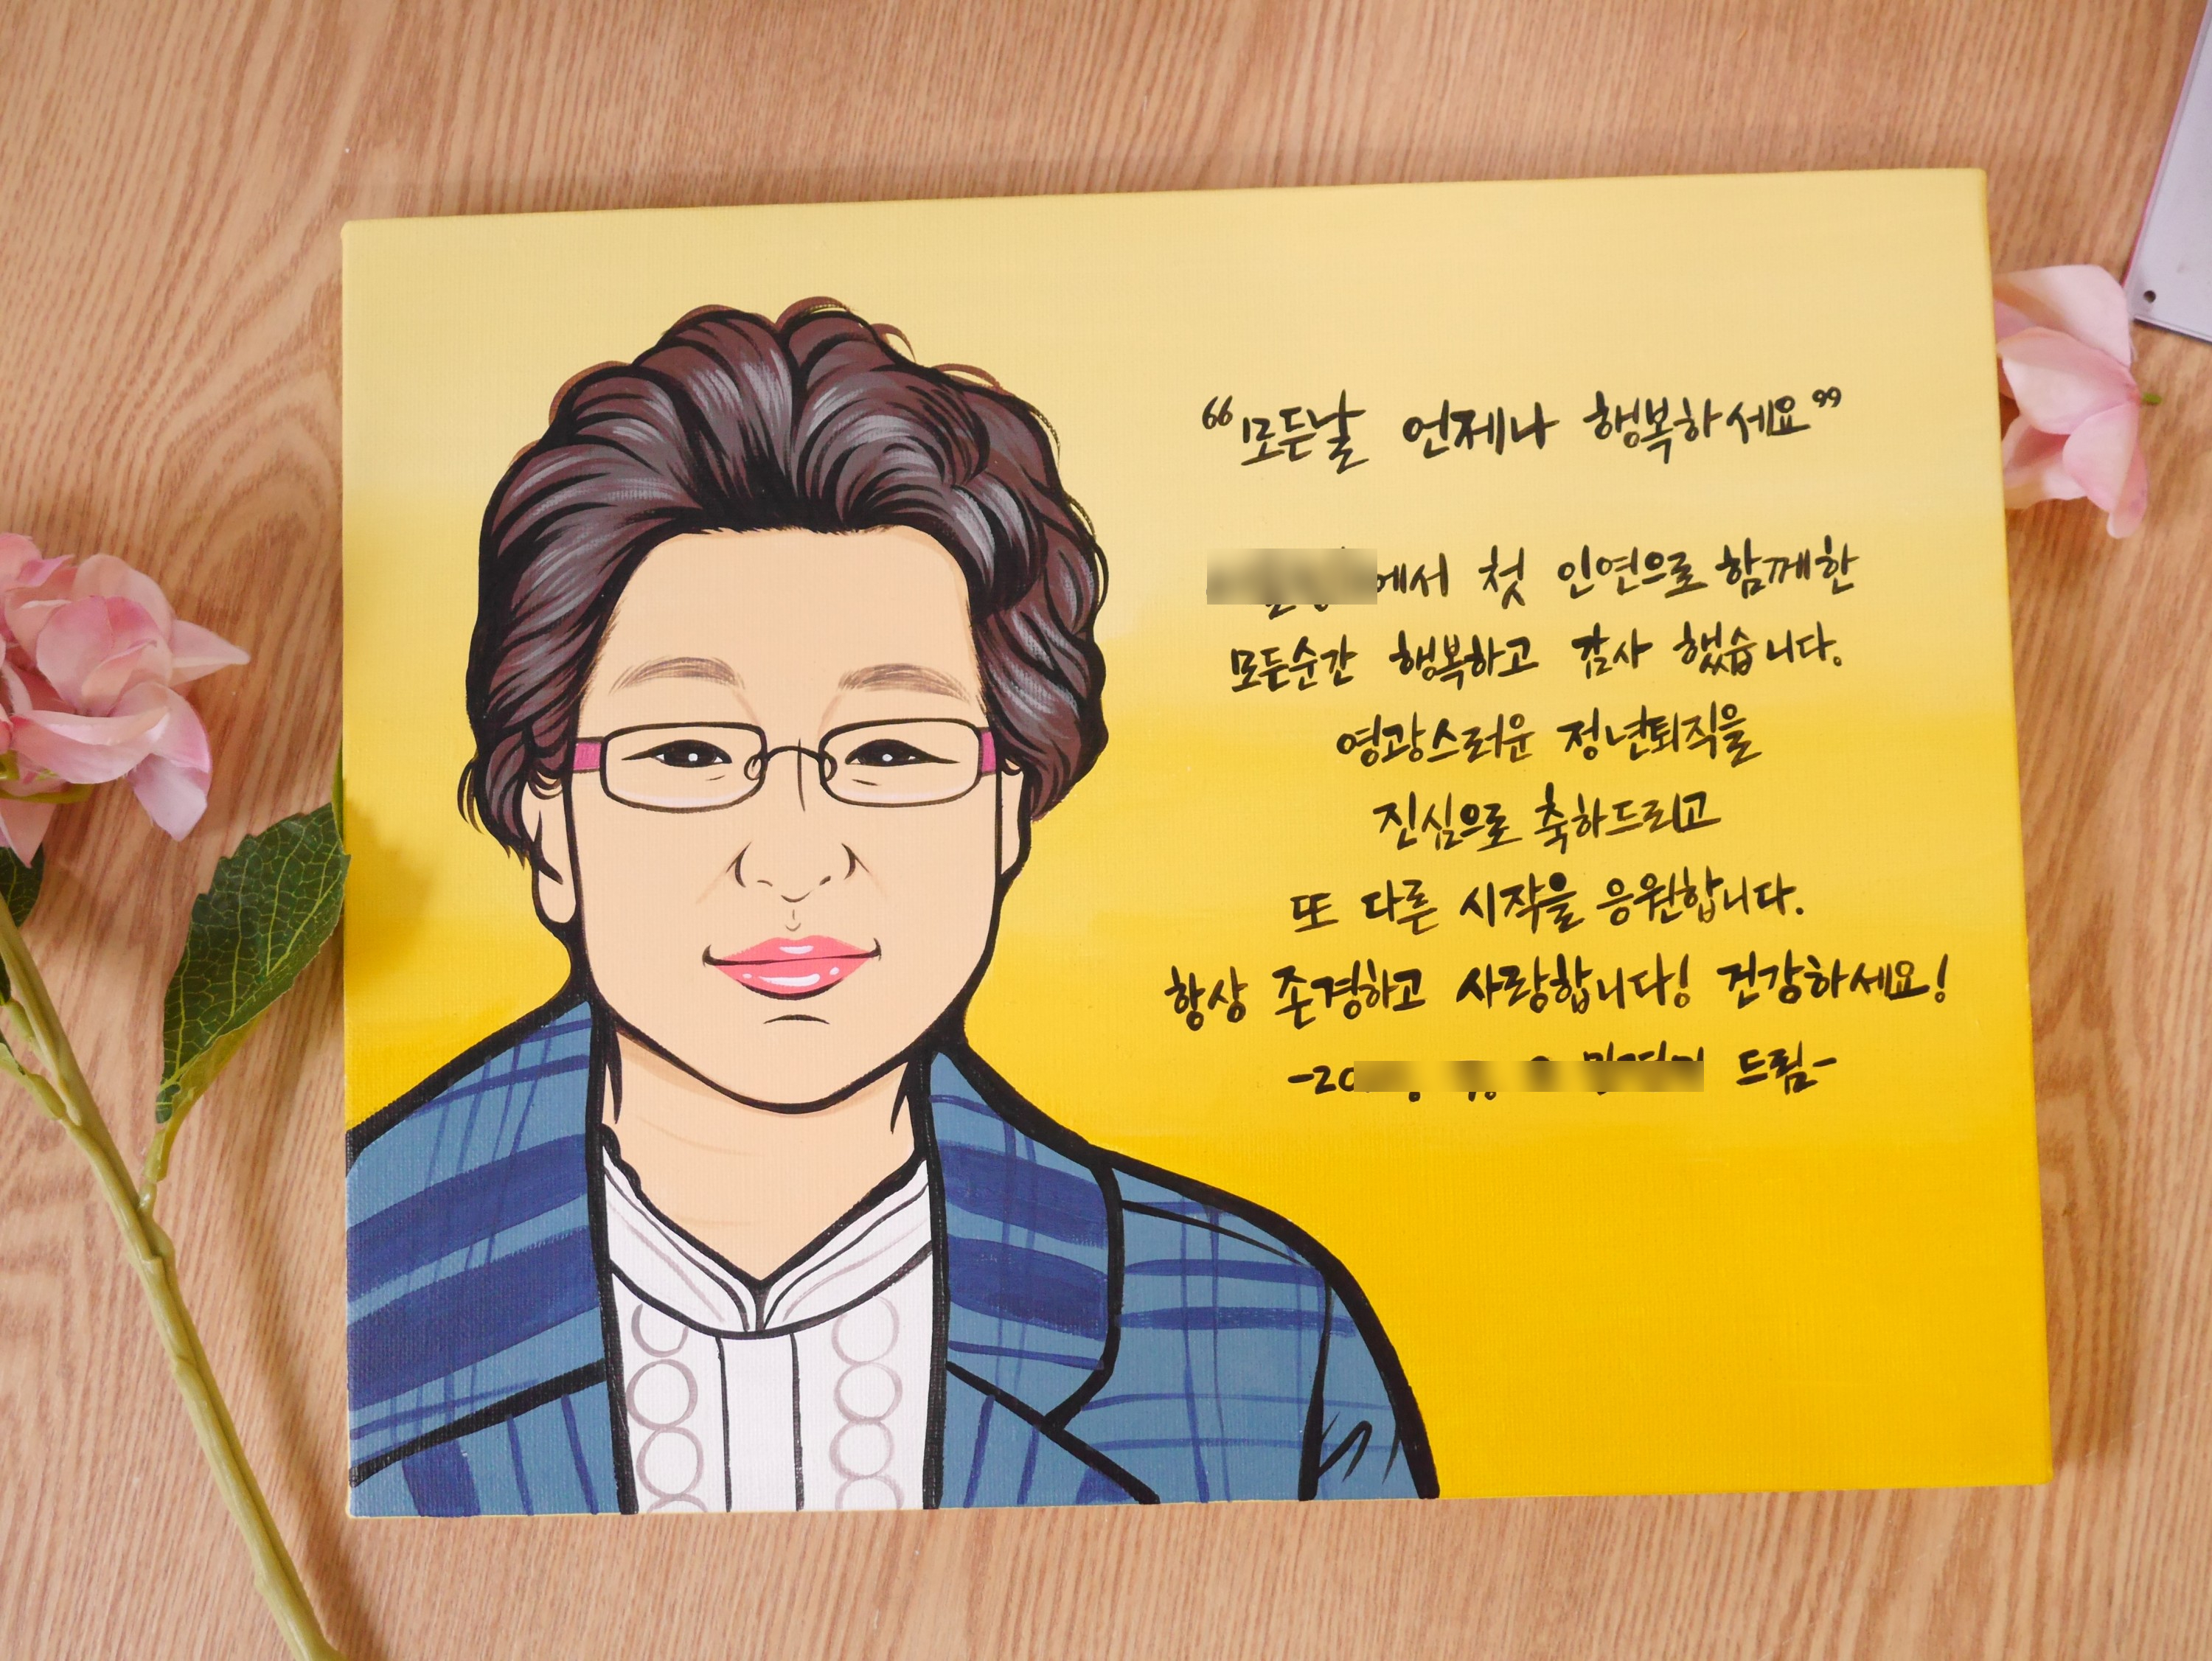 "모든날 언제나 행복하세요"
에서 첫 인연으로 함께한
모든순간 행복하고 감사 했습니다.
영광스러운 정년퇴직을
진심으로 축하드리고
또 다른 시작을 응원합니다.
항상 존경하고 사랑합니다! 건강하세요!
-20 드림-